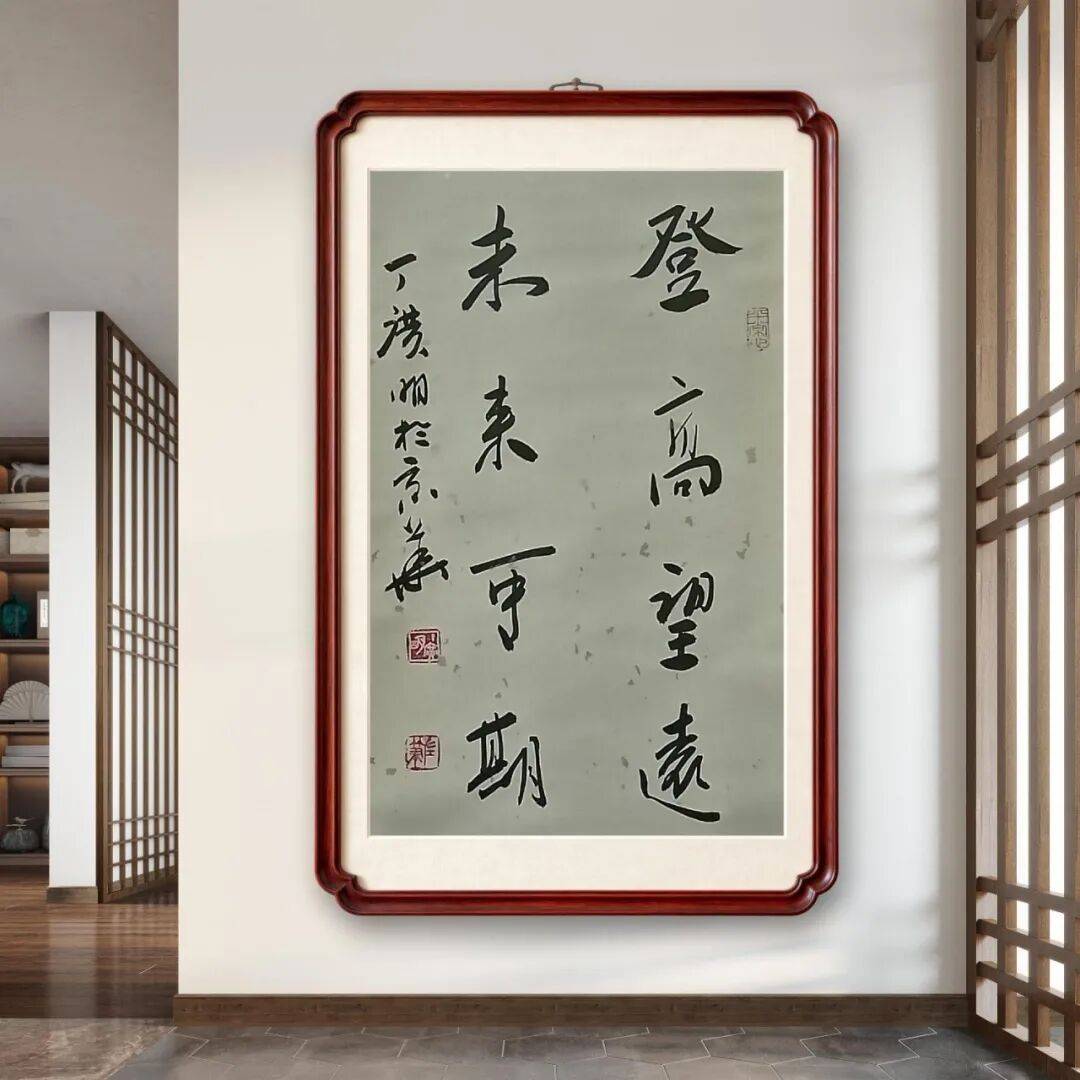 登高望遠
未来可期
丁廣明於京華